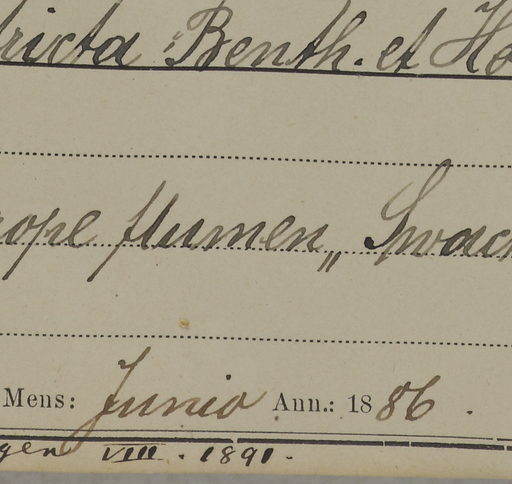 ricta Benth. et Ho
rope flumen „Swac
Mens: Junio Ann.: 1886.
gen VIII. 1891.